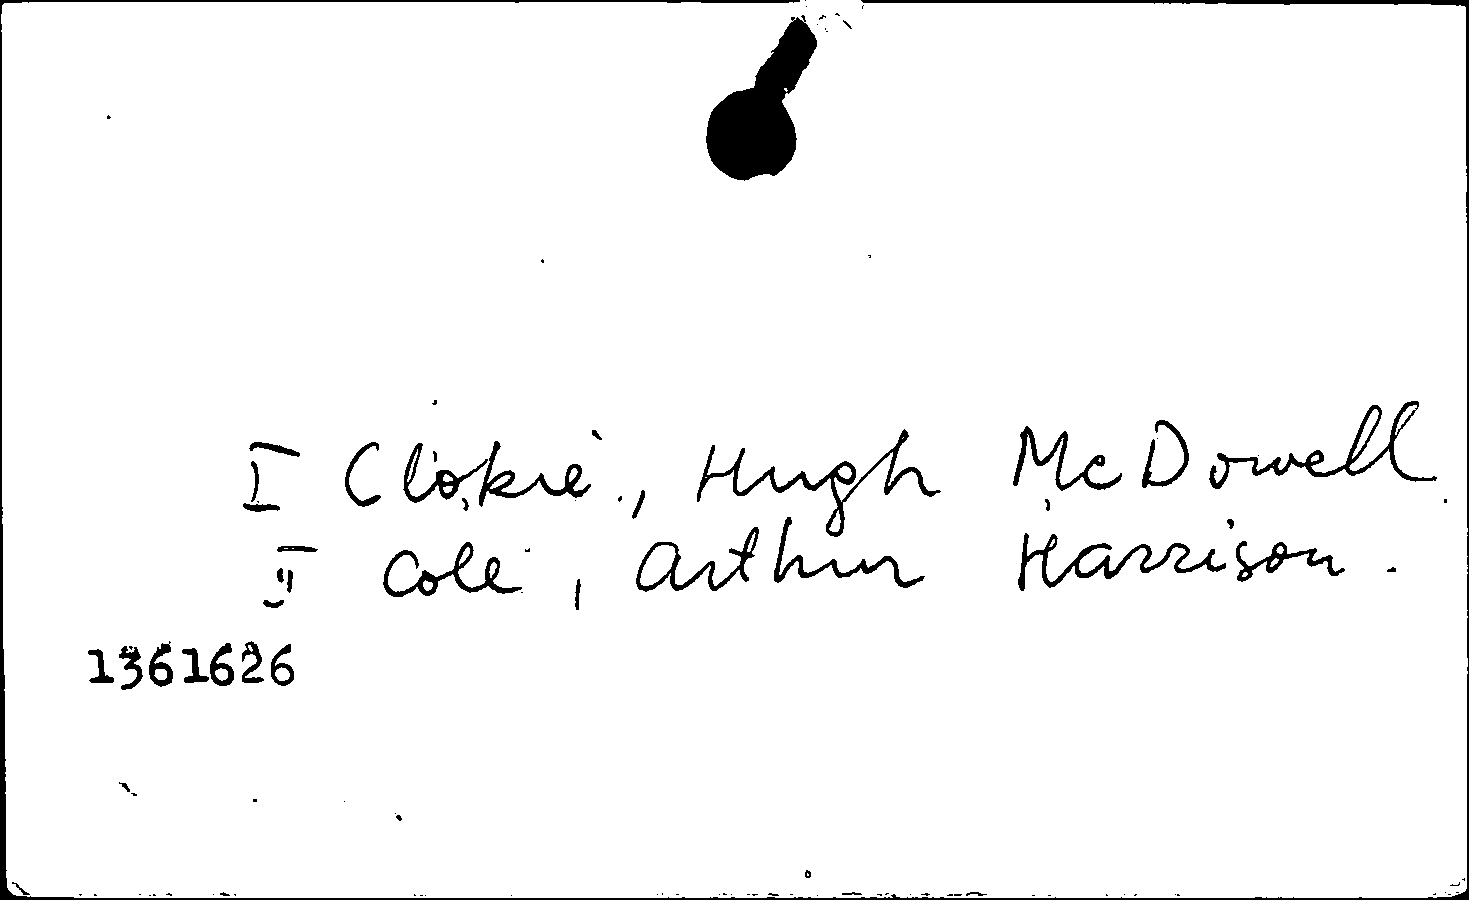 I Clokie, Hugh McDowell
II Cole, Arthur Harrison.
1361626